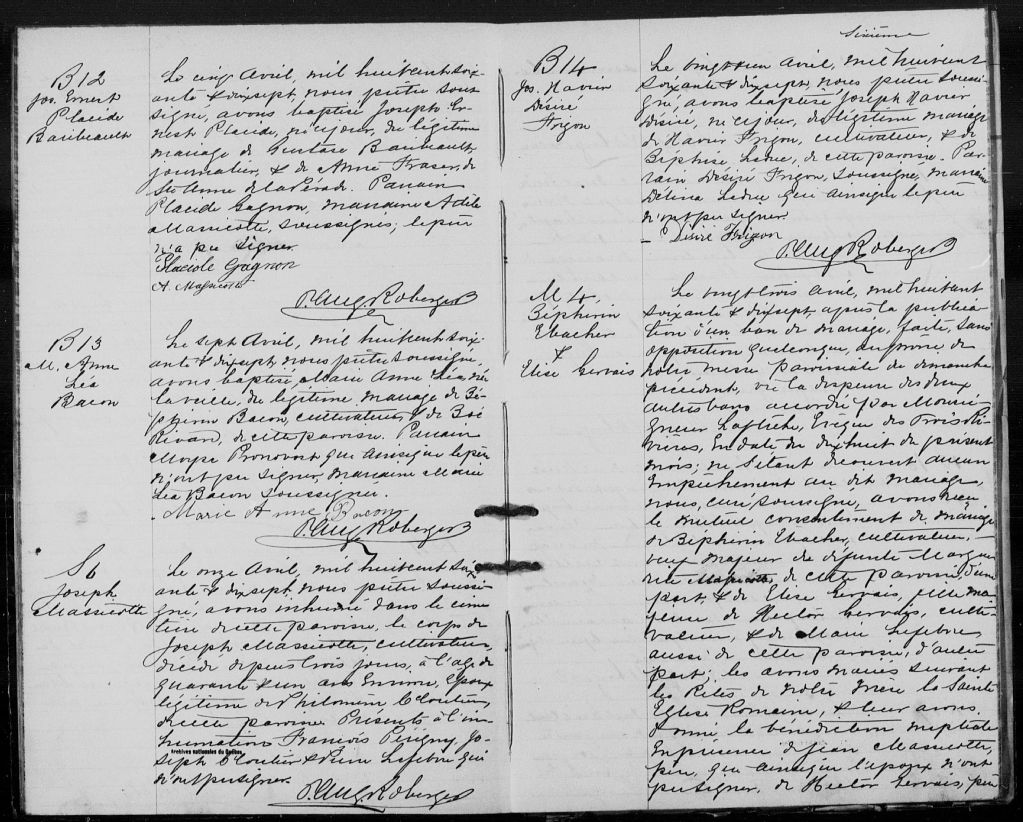 B 12
Jos. Ernest
Placide
Baribeault
Le cinq Avril, mil huit cent soix-
ante & dixsept, nous prêtre sous-
signé, avons baptisé Joseph Er-
nest Placide, né ce jour, du légitime
mariage de Gustave Baribeault
journalier, & de Anne Fraser, de
Ste Anne de la Pérade. Parrain
Placide Gagnon, marraine Adèle
Massicotte, soussignés; le père
n'a pu signer
Placide Gagnon
A. Massicotte
P. Aug. Roberge
B 13
M. Anne
Léa
Bacon
Le sept Avril, mil huit cent soix-
ante & dixsept, nous prêtre soussigné,
avons baptisé Marie Anne Léa, née
la veille, du légitime mariage de Zé-
phirin Bacon, cultivateur & de Zoé
Rivard, de cette paroisse. Parrain
Moyse Pronovost qui ainsi que le père
n'ont pu signer, marraine Marie
Léa Bacon soussignée.
Marie Anne Bacon
P. Aug. Roberge
S 6
Joseph
Massicotte
Le onze Avril, mil huit cent soix-
ante & dixsept, nous prêtre soussi-
gné, avons inhumé dans le cime-
tière de cette paroisse, le corps de
Joseph Massicotte, cultivateur,
décédé depuis trois jours, à l'age de
quarante & un ans environ, époux
légitime de Philomène Cloutier,
de cette paroisse. Présents à l'in-
humation François Périgny, Jo-
Archives nationales du Québec
seph Cloutier & Pierre Lefebvre qui
n'ont pu signer.
P. Aug. Roberge
Sixième
B 14
Jos. Xavier
Désiré
Frigon
Le vingt un Avril, mil huit cent
soixante & dixsept, nous prêtre soussi-
gné, avons baptisé Joseph Xavier
Désiré, né ce jour, du légitime mariage
de Xavier Frigon, cultivateur, & de
Zéphise Leduc, de cette paroisse. Par-
rain Désiré Frigon, soussigné, marraine
Délina Leduc qui ainsi que le père
n'ont pu signer
Désiré Frigon
P. Aug. Roberge
M 4.
Zéphirin
Ebacher
&
Elise Gervais
Le vingt trois Avril, mil huit cent
soixante & dixsept, après la publica-
tion d'un ban de mariage, faite, sans
opposition quelconque, au prône de
notre messe paroissiale de dimanche
précédent, vu la dispense des deux
autres bans accordée par Monsei-
gneur Lafleche, Evêque des Trois Ri-
vières, en date du dix huit du présent
mois; ne s'étant découvert aucun
empêchement au dit mariage,
nous, curé soussigné, avons reçu
le mutuel consentement de mariage
de Zéphirin Ebacher, cultivateur,
veuf majeur de défunte Margue-
rite Massicotte, de cette paroisse, d'une
part, & de Elise Gervais, fille ma-
jeure de Hector Gervais, culti-
vateur, & de Marie Lefebvre
aussi de cette paroisse, d'autre
part; les avons mariés suivant
les Rites de notre Mère la Sainte
Eglise Romaine, & leur avons
donné la bénédiction nuptiale
en présence de Jean Massicotte,
père, qui ainsi que l'époux n'ont
pu signer, de Hector Gervais, père